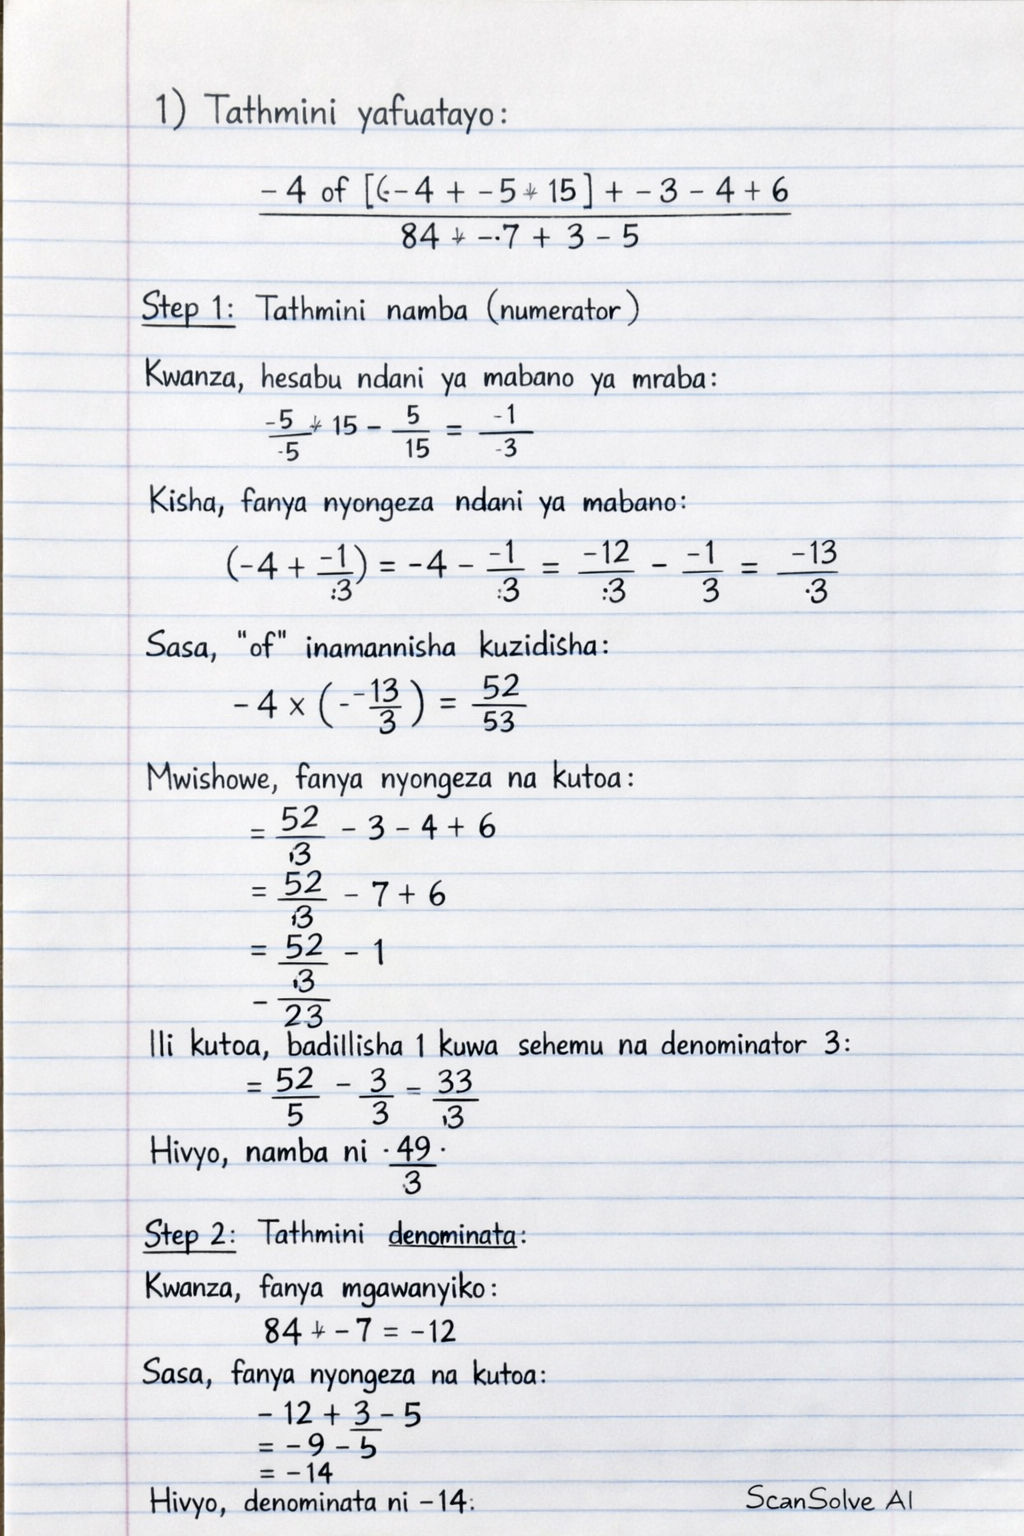 1) Tathmini yafuatayo:
- 4 of [(-4 + -5 ÷ 15] + -3 - 4 + 6
84 ÷ -7 + 3 - 5
Step 1: Tathmini namba (numerator)
Kwanza, hesabu ndani ya mabano ya mraba:
-5/-5 ÷ 15 - 5/15 = -1/-3
Kisha, fanya nyongeza ndani ya mabano:
(-4 + -1/:3) = -4 - -1/:3 = -12/:3 - -1/3 = -13/·3
Sasa, "of" inamannisha kuzidisha:
-4 × (--13/3) = 52/53
Mwishowe, fanya nyongeza na kutoa:
= 52/3 - 3 - 4 + 6
= 52/3 - 7 + 6
= 52/3 - 1
- 23
Ili kutoa, badillisha 1 kuwa sehemu na denominator 3:
= 52/5 - 3/3 - 33/3
Hivyo, namba ni ·49/3·
Step 2: Tathmini denominata:
Kwanza, fanya mgawanyiko:
84 ÷ -7 = -12
Sasa, fanya nyongeza na kutoa:
- 12 + 3 - 5
= -9 - 5
= -14
Hivyo, denominata ni -14:
ScanSolve AI